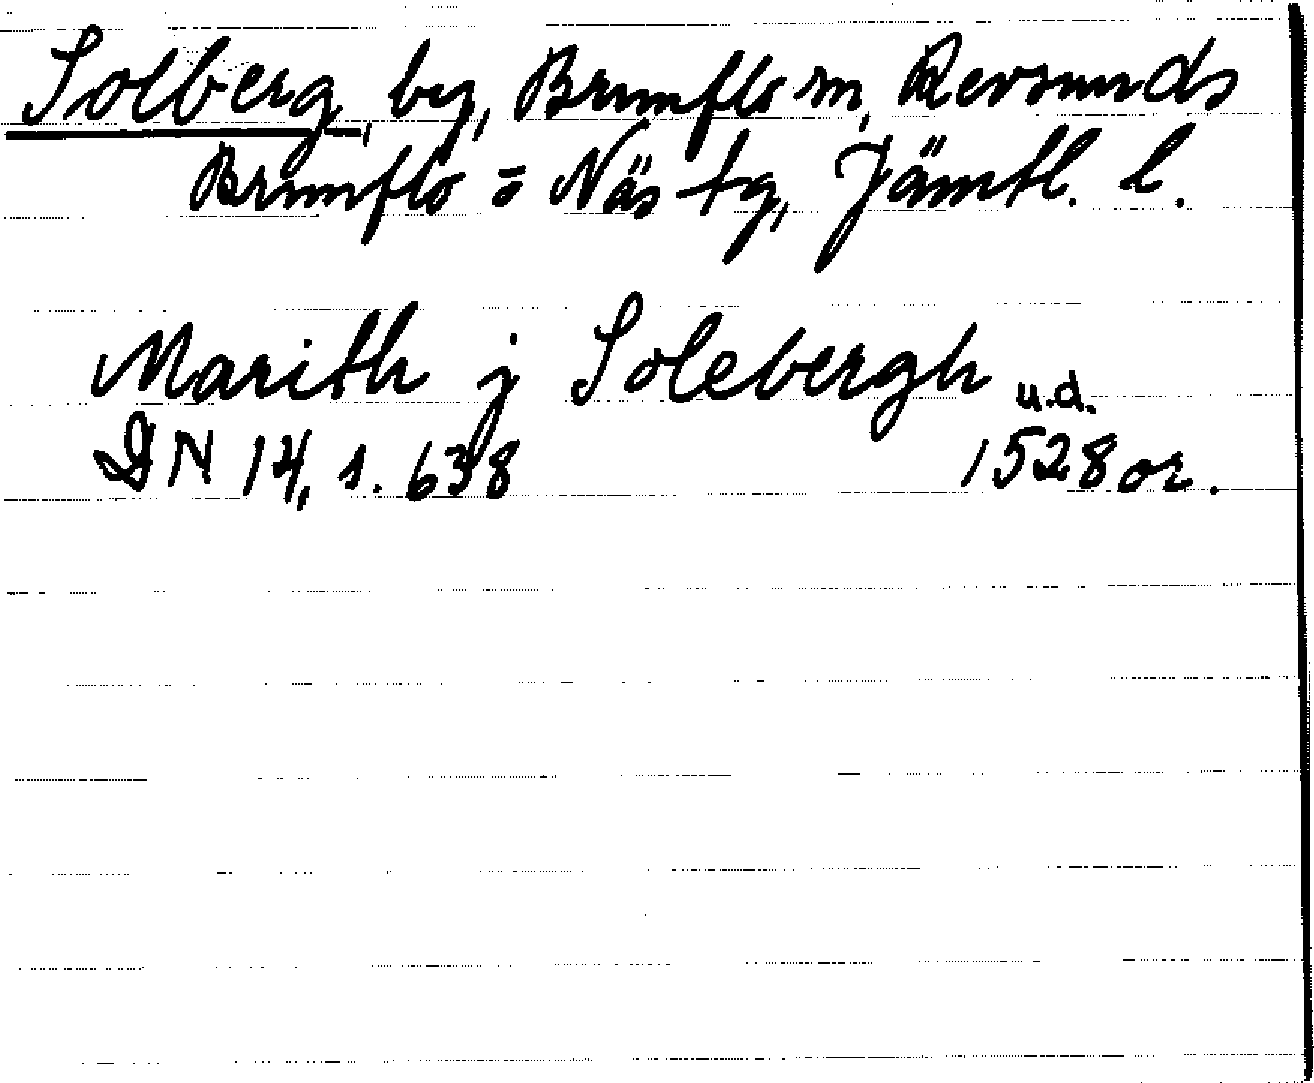 Solberg, by, Brunflo sn, Revsunds
Brunflo o Näs tg, Jämtl. l.
Marith j Solebergh u.d.
DN 14, s. 638 1528 or.